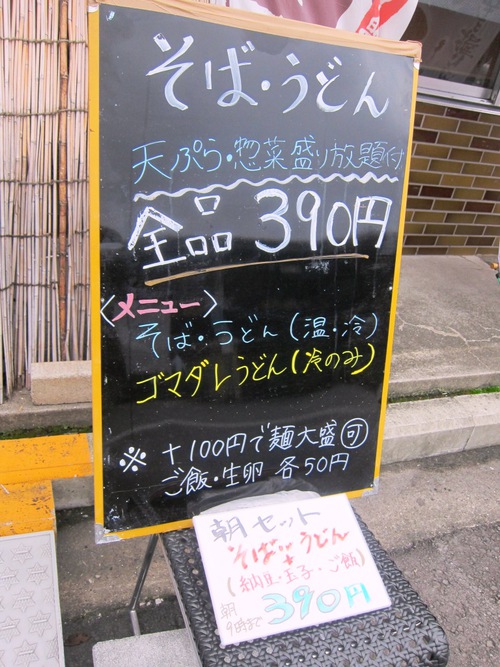 そば・うどん
天ぷら・惣菜盛り放題付
全品 390円
〈メニュー〉
そば・うどん(温・冷)
ゴマダレうどん(冷のみ)
※ +100円で麺大盛可
ご飯・生卵 各50円
朝セット
そば・うどん
+
(納豆・玉子・ご飯)
朝9時まで 390円